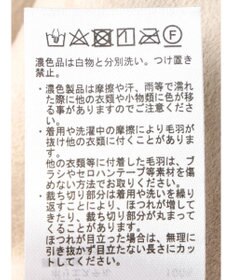 濃色品は白物と分別洗い。つけ置き
禁止。
・濃色製品は摩擦や汗、雨等で濡れ
た際に他の衣類や小物類に色が移
る事がありますのでご注意くださ
い。
・着用や洗濯中の摩擦により毛羽が
抜け他の衣類に付くことがありま
す。
他の衣類等に付着した毛羽は、ブ
ラシやセロハンテープ等素材を傷め
ない方法でお取りください。
・裁ち切り部分は着用や洗いを繰り
返すことにより、ほつれが増して
きたり、裁ち切り部分が丸まってく
ることがあります。
ほつれが目立った場合は、無理に
引き抜かず目立たない長さにカット
してください。